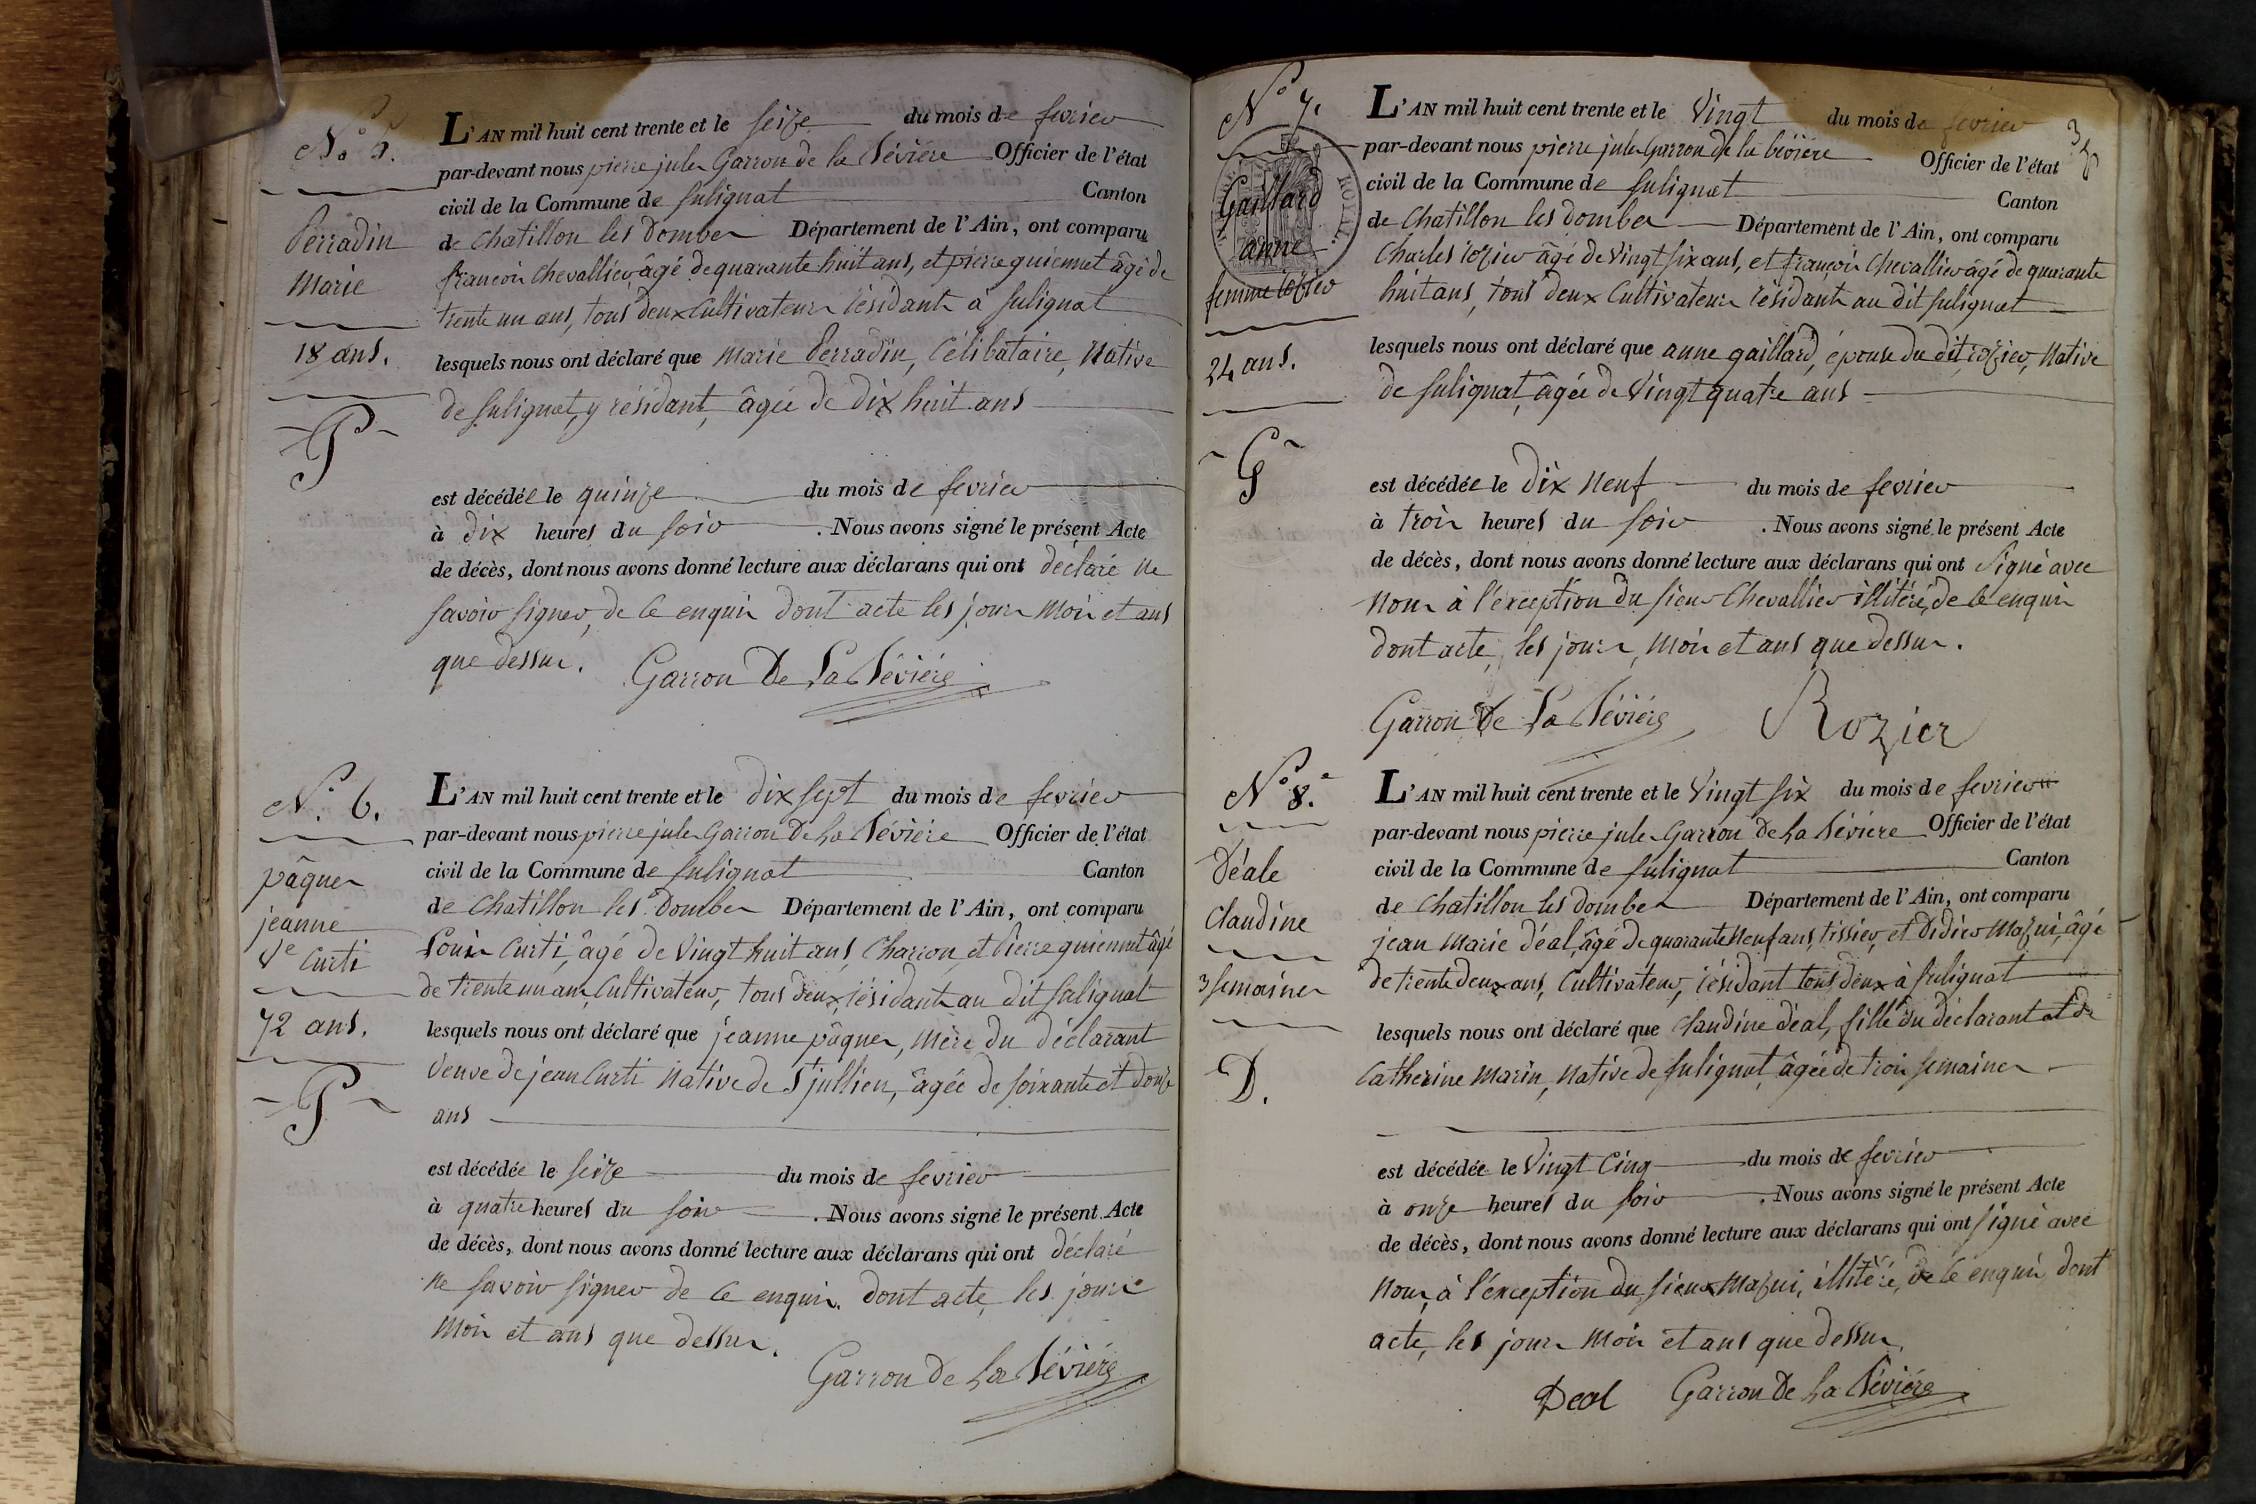 N.° 5.
Perradin
Marie
18 ans.
P
L'AN mil huit cent trente et le seize du mois de fevrier
par-devant nous pierre jules Garron de la Bévière Officier de l'état
civil de la Commune de Sulignat Canton
de Chatillon les Dombes Département de l'Ain, ont comparu
françois Chevallier, âgé de quarante huit ans, et pierre guiennet âgé de
trente un ans, tous deux Cultivateurs résidants à Sulignat
lesquels nous ont déclaré que Marie Perradin, Célibataire, Native
de Sulignat, y résidant, âgée de Dix huit ans
est décédée le quinze du mois de fevrier
à Dix heures du soir . Nous avons signé le présent Acte
de décès, dont nous avons donné lecture aux déclarans qui ont déclaré ne
savoir signer, de ce enquis dont acte les jours Mois et ans
que dessus. Garron De La Bévière
N.° 6.
pâques
jeanne
Ve Curti
72 ans.
P
L'AN mil huit cent trente et le dix sept du mois de fevrier
par-devant nous pierre jules Garron De La Bévière Officier de l'état
civil de la Commune de Sulignat Canton
de Chatillon les Dombes Département de l'Ain, ont comparu
Louis Curti, âgé de Vingt huit ans, Charron, et Pierre guiennet âgé
de trente un ans Cultivateur, tous deux, résidants au dit Sulignat
lesquels nous ont déclaré que jeanne pâques, Mère du déclarant
Veuve de jean Curti Native de St jullien, âgée de soixante et douze
ans
est décédée le seize du mois de fevrier
à quatre heures du soir . Nous avons signé le présent Acte
de décès, dont nous avons donné lecture aux déclarans qui ont déclaré
ne savoir signer de ce enquis. Dont acte, les jours
Mois et ans que dessus.
Garron De La Bévière
N° 7.
Gaillard
anne
femme rozier
24 ans.
G
ROYAL.
L'AN mil huit cent trente et le Vingt du mois de fevrier
par-devant nous pierre jules Garron De la bévière Officier de l'état
civil de la Commune de Sulignat Canton
de Chatillon les Dombes Département de l'Ain, ont comparu
Charles rozier âgé de Vingt six ans, et françois Chevallier âgé de quarante
huit ans, tous deux Cultivateurs résidants au dit Sulignat
lesquels nous ont déclaré que anne gaillard, épouse du dit, rozier, Native
de Sulignat, âgée de Vingt quatre ans
est décédée le Dix Neuf du mois de fevrier
à trois heures du soir . Nous avons signé le présent Acte
de décès, dont nous avons donné lecture aux déclarans qui ont Signé avec
Nous à l'exception Du sieur Chevallier illitéré, de ce enquis
Dont acte, les jours, Mois et ans que dessus.
Garron De La Bévière Rozier
N° 8.
Déale
Claudine
3 semaines
D.
L'AN mil huit cent trente et le Vingt six du mois de fevrier
par-devant nous pierre jules Garron de La Bévière Officier de l'état
civil de la Commune de Sulignat Canton
de Chatillon les Dombes Département de l'Ain, ont comparu
jean Marie Déal, âgé de quarante Neuf ans, tissier, et Didier Mazui, âgé
de trente deux ans, Cultivateur, résidant tous deux à Sulignat
lesquels nous ont déclaré que Claudine Déal, fille du déclarant et de
Catherine Marin, Native de Sulignat, âgée de trois semaines
est décédée le Vingt Cinq du mois de fevrier
à onze heures du soir . Nous avons signé le présent Acte
de décès, dont nous avons donné lecture aux déclarans qui ont Signé avec
Nous, à l'exception du sieur Mazui, illitéré, de ce enquis, dont
acte, les jours Mois et ans que dessus.
Deal Garron De La Bévière